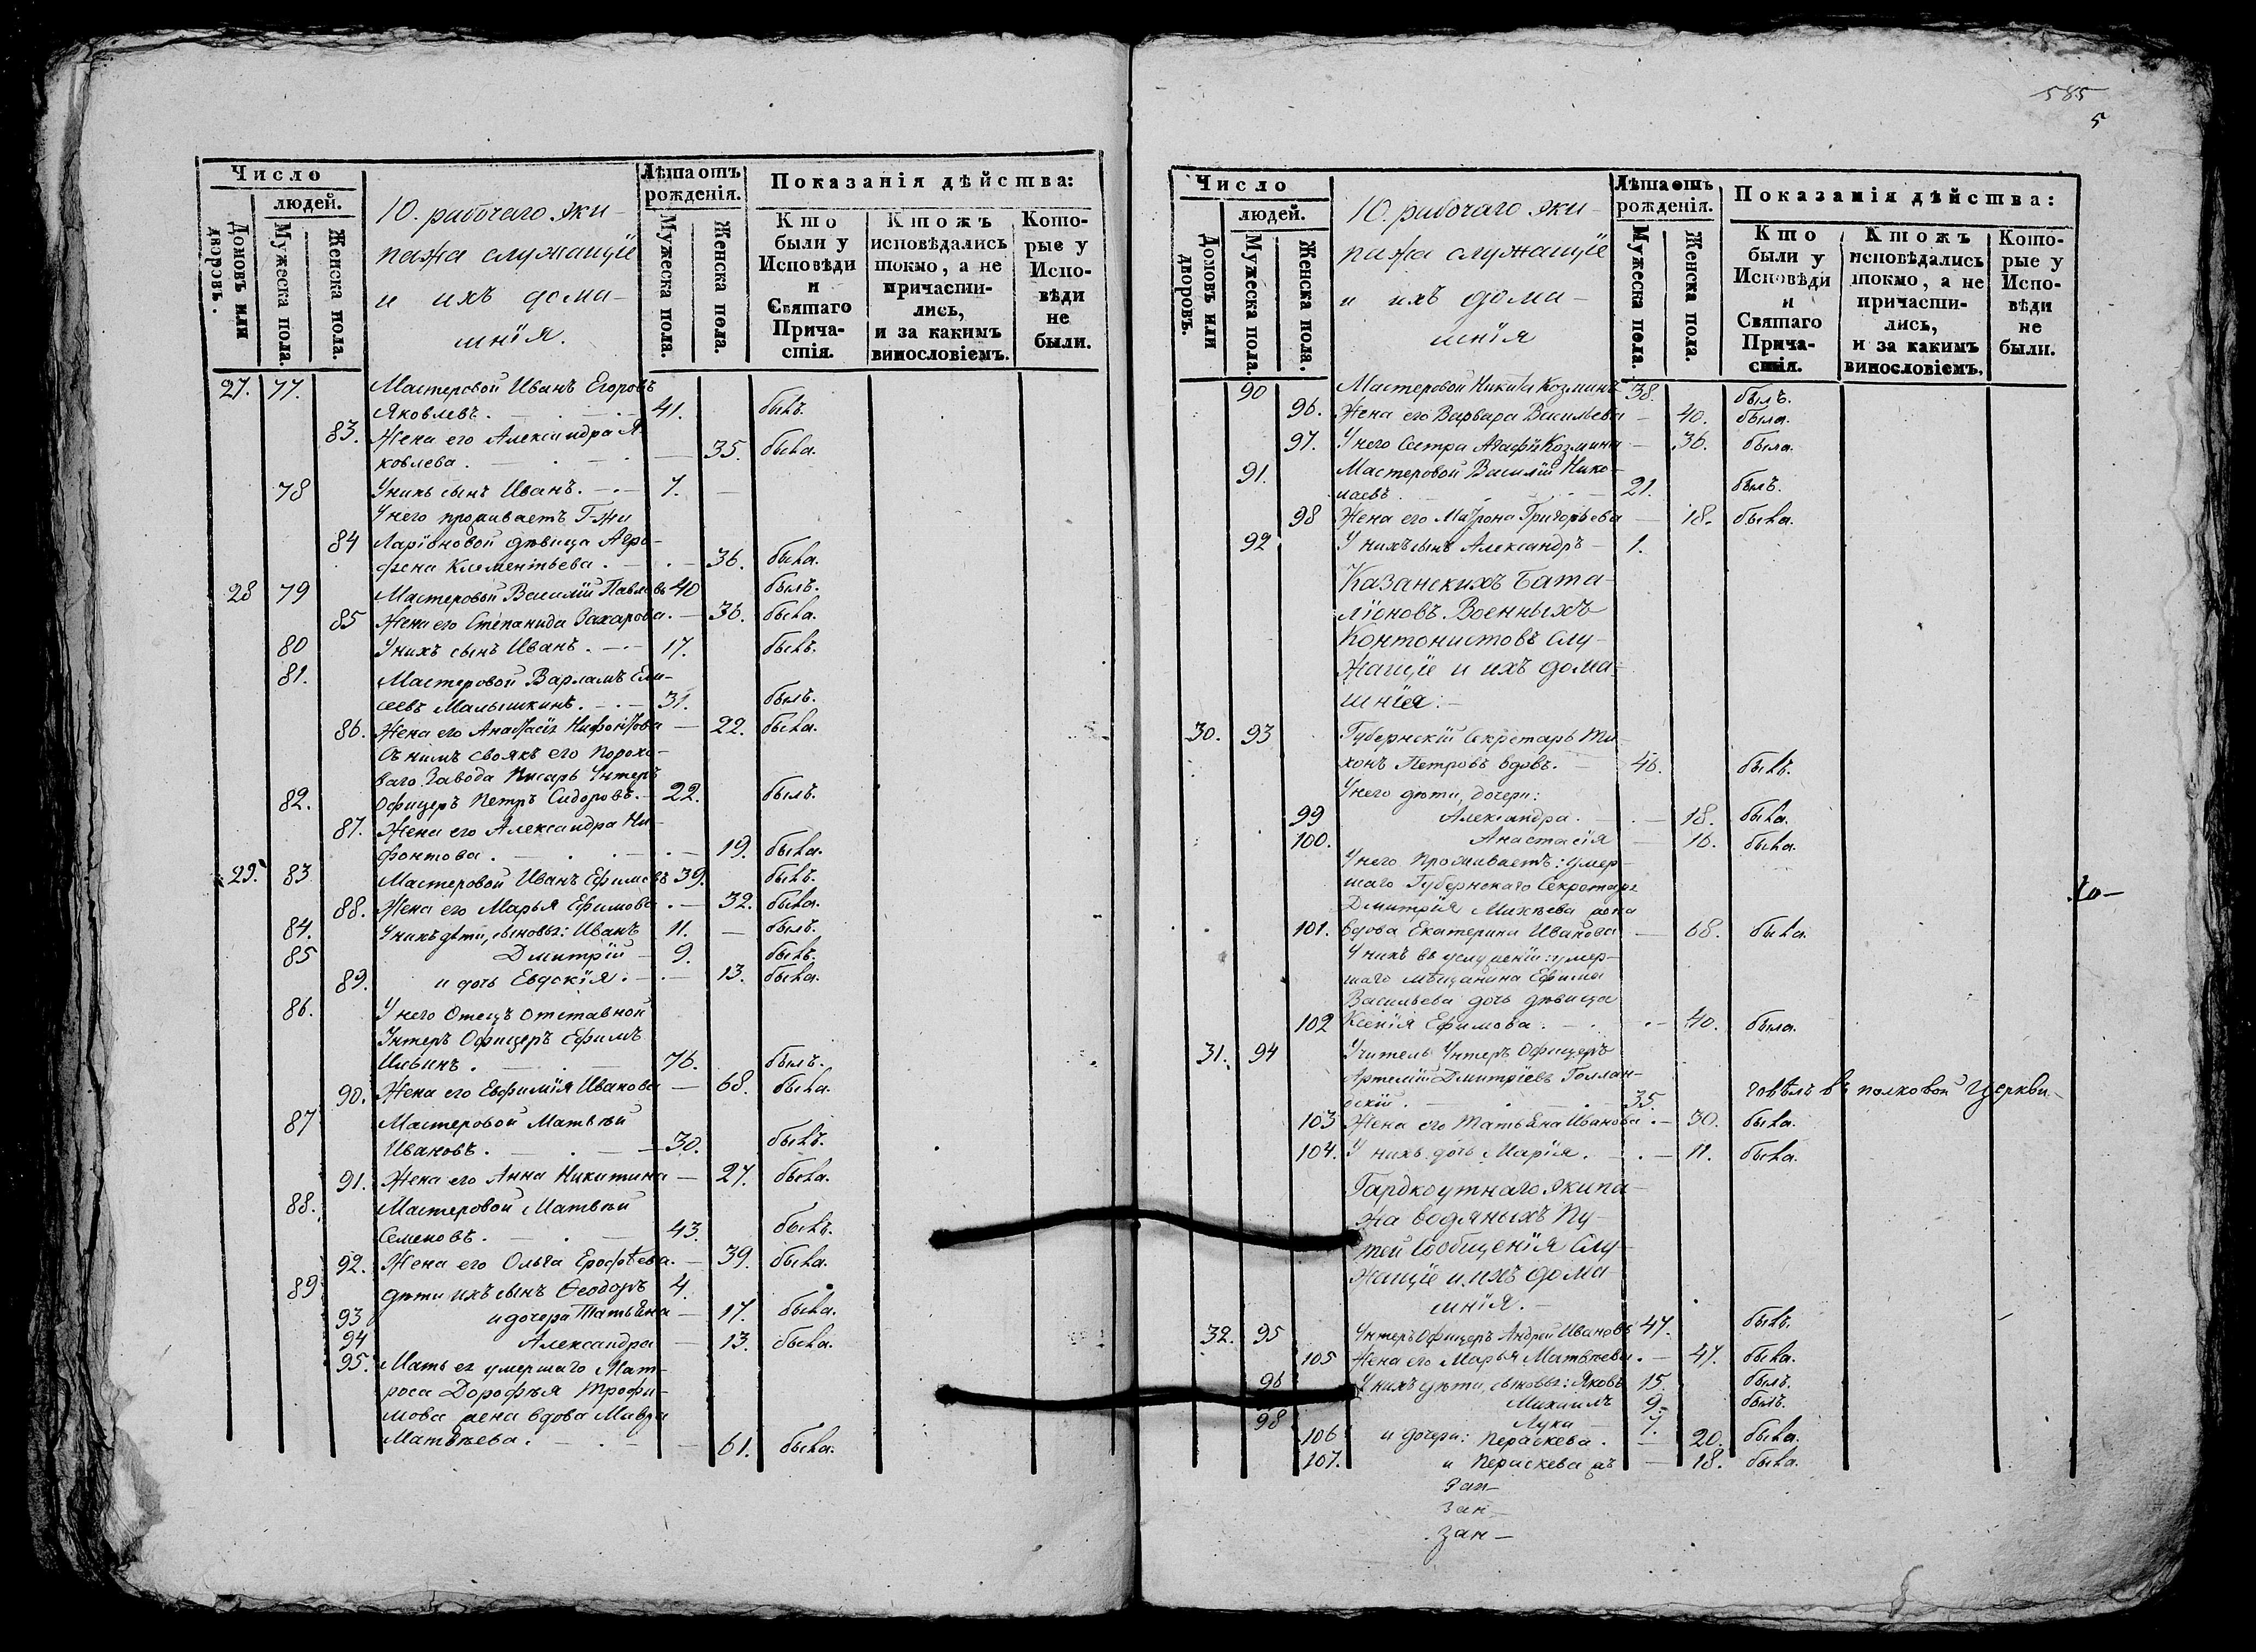 Число
людей.
Домовъ или дворовъ.
Мужеска пола.
Женска пола.
10. рабочаго эки-
пажа служащіе
и ихъ дома-
шнія.
Лѣта отъ рожденія.
Мужеска пола.
Женска пола.
Показанія дѣйства:
Кто были у Исповѣди и Святаго Прича-стія.
Ктожъ исповѣдались токмо, а не причасти-лись, и за какимъ винословіемъ.
Кото-рые у Испо-вѣди не были.
27. 77. Мастеровой Иванъ Егоровъ
Яковлевъ. 41. былъ.
83. Жена его Александра Я-
ковлева. 35. была.
78 У нихъ сынъ Иванъ. 7.
У него проживаетъ Г-жи
84 Ларіоновой дѣвица Агра-
фена Климентьева. 36. была.
28 79 Мастеровой Василій Павловъ 40 былъ.
85 Жена его Степанида Захарова. 36. была.
80 У нихъ сынъ Иванъ. 17. былъ.
81. Мастеровой Варламъ Ели-
сеевъ Малышкинъ. 31. былъ.
86. Жена его Анастасія Нифонтова 22. была.
Съ нимъ своякъ его порохо-
ваго Завода Писарь Унтеръ
82. Офицеръ Петръ Сидоровъ. 22. былъ.
87. Жена его Александра Ни-
фонтова. 19. была.
29. 83 Мастеровой Иванъ Ефимовъ 39. былъ.
88. Жена его Марья Ефимова. 32. была.
84. У нихъ дѣти, сыновья: Иванъ 11. былъ.
85 Дмитрій 9. былъ.
89. и дочь Евдокія. 13. была.
86. У него Отецъ отставной
Унтеръ Офицеръ Ефимъ
Ильинъ. 76. былъ.
90. Жена его Евфимія Иванова 68. была.
87 Мастеровой Матвѣй
Ивановъ. 30. былъ.
91. Жена его Анна Никитина 27. была.
88. Мастеровой Матвѣй
Семеновъ. 43. былъ.
92. Жена его Ольга Ерофѣева. 39. была.
89 дѣти ихъ сынъ Ѳеодоръ 4.
93 и дочери Татьяна 17. была.
94 Александра 13. была.
95. Мать ея умершаго Мат-
роса Дорофѣя Трофи-
мова жена вдова Мавра
Матвѣева. 61. была.
585
5
Число
людей.
Домовъ или дворовъ.
Мужеска пола.
Женска пола.
10. рабочаго эки-
пажа служащіе
и ихъ дома-
шнія
Лѣта отъ рожденія.
Мужеска пола.
Женска пола.
Показанія дѣйства:
Кто были у Исповѣди и Святаго Прича-стія.
Ктожъ исповѣдались токмо, а не причасти-лись, и за какимъ винословіемъ.
Кото-рые у Испо-вѣди не были.
90 Мастеровой Никита Козминъ 38. былъ.
96. Жена его Варвара Васильева 40. была.
97. У него Сестра Агафія Козмина 36. была.
91. Мастеровой Василій Нико-
лаевъ 21. былъ.
98 Жена его Матрона Григорьева 18. была.
92 У нихъ сынъ Александръ 1.
Казанскихъ Бата-
ліоновъ Военныхъ
Контонистовъ Слу-
жащіе и ихъ дома-
шнія.
30. 93 Губернскій Секретарь Ти-
хонъ Петровъ вдовъ. 46. былъ.
У него дѣти, дочери:
99 Александра. 18. была.
100. Анастасія 16. была.
У него проживаетъ: умер-
шаго Губернскаго Секретаря
Дмитрія Михѣева жена
101. вдова Екатерина Иванова 68. была.
У нихъ въ услуженіи: умер-
шаго мѣщанина Ефима
Васильева дочь дѣвица
102 Ксенія Ефимова. 40. была.
31. 94 Учитель Унтеръ Офицеръ
Артемій Дмитріевъ Голлан-
скій. 35. говѣлъ въ полковой церкви
103 Жена его Татьяна Иванова. 30. была.
104. У нихъ дочь Марія. 11. была.
Гардкоутнаго экипа-
жа водяныхъ Пу-
тей Сообщенія Слу-
жащіе и ихъ дома-
шнія.
32. 95 Унтеръ Офицеръ Андрей Ивановъ 47. былъ.
105 Жена его Марья Матвѣева. 47. была.
96 У нихъ дѣти, сыновья: Яковъ 15. былъ.
Михаилъ 9. былъ.
98 Лука 7.
106 и дочери: Пераскева. 20. была.
107. и Пераскева жъ 18. была.
Зан-
Зан-
Зан-